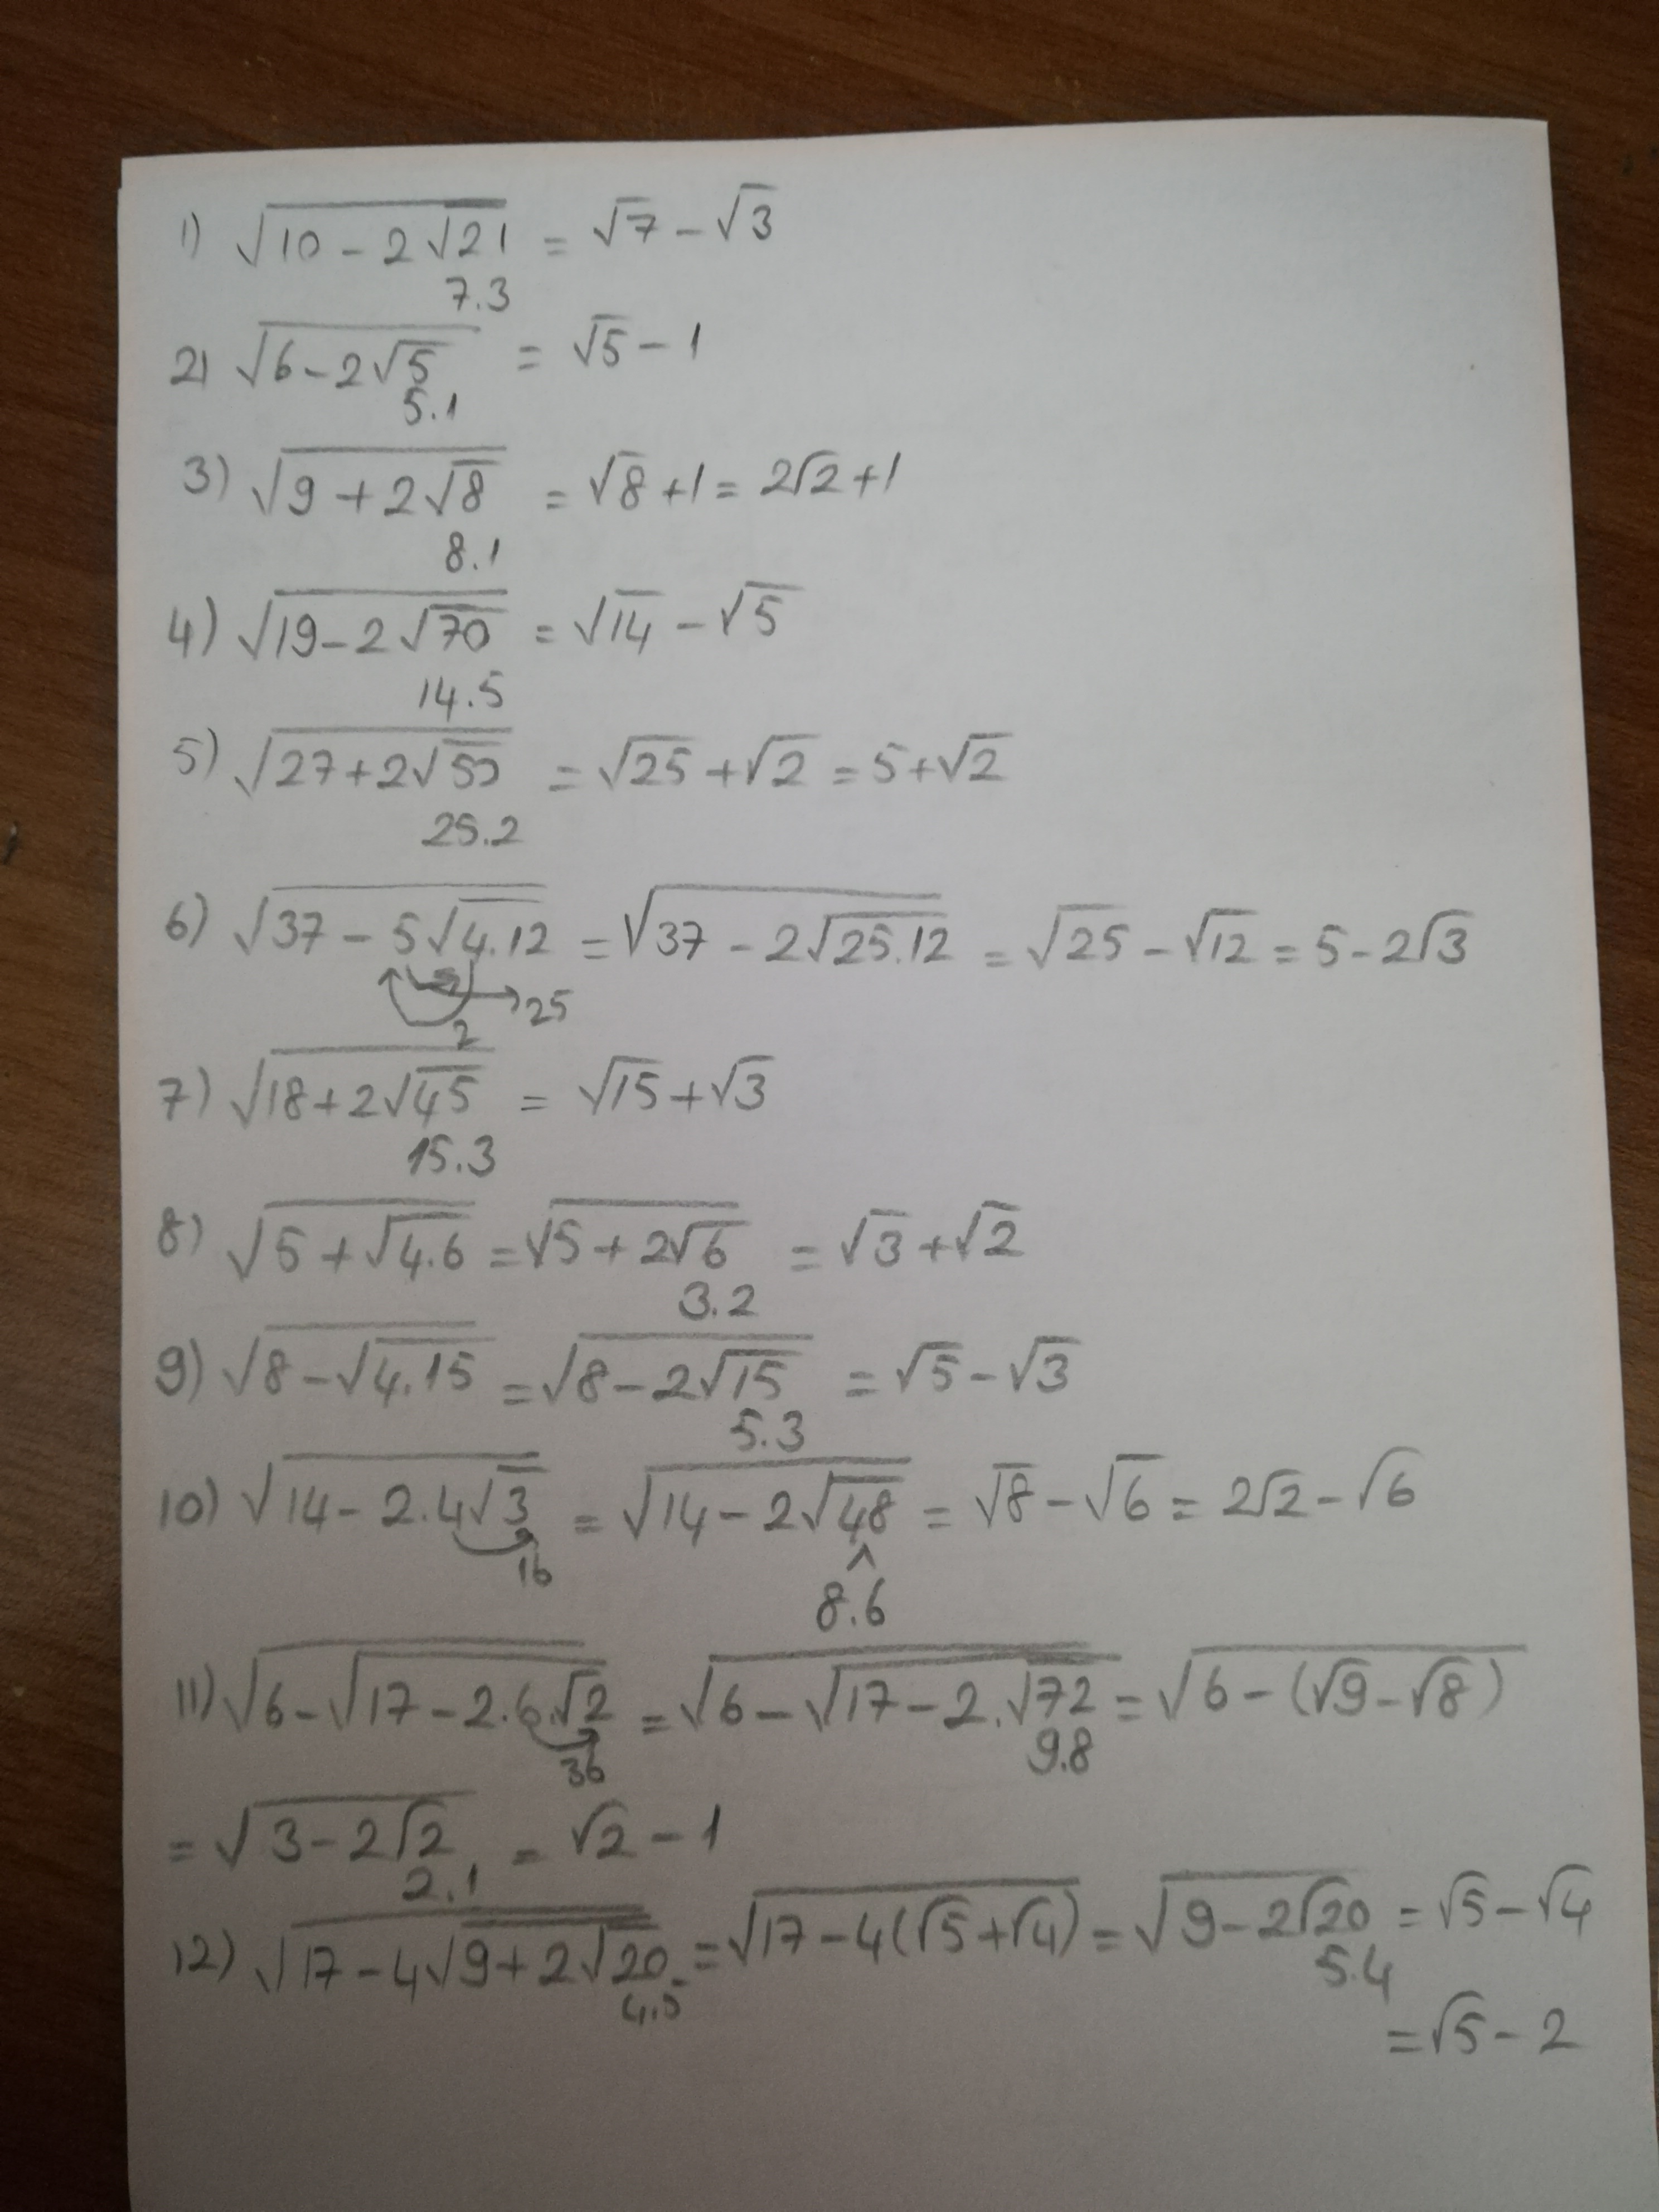 1) √(10 - 2√21) = √7 - √3
7.3
2) √(6 - 2√5) = √5 - 1
5.1
3) √(9 + 2√8) = √8 + 1 = 2√2 + 1
8.1
4) √(19 - 2√70) = √14 - √5
14.5
5) √(27 + 2√50) = √25 + √2 = 5 + √2
25.2
6) √(37 - 5√4.12) = √(37 - 2√25.12) = √25 - √12 = 5 - 2√3
25
2
7) √(18 + 2√45) = √15 + √3
15.3
8) √(5 + √4.6) = √(5 + 2√6) = √3 + √2
3.2
9) √(8 - √4.15) = √(8 - 2√15) = √5 - √3
5.3
10) √(14 - 2.4√3) = √(14 - 2√48) = √8 - √6 = 2√2 - √6
16
8.6
11) √(6 - √(17 - 2.6.√2)) = √(6 - √(17 - 2.√72)) = √(6 - (√9 - √8))
36 9.8
= √(3 - 2√2) = √2 - 1
2.1
12) √(17 - 4√(9 + 2√20)) = √(17 - 4(√5 + √4)) = √(9 - 2√20) = √5 - √4
4.5 5.4
= √5 - 2